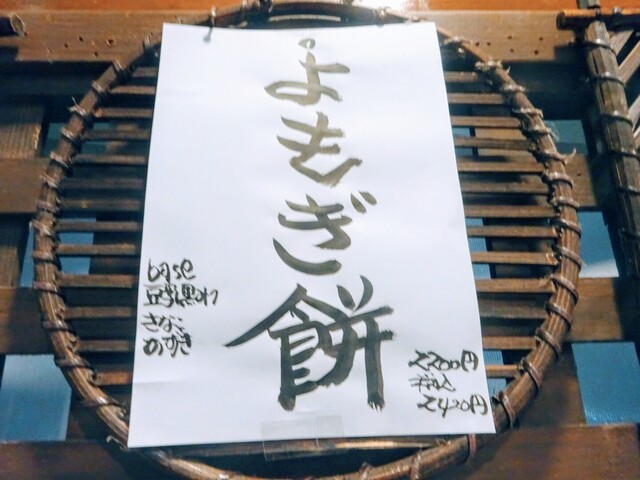 よもぎ餅
豆乳黒みつ
きなこ
2200円
税込
2420円